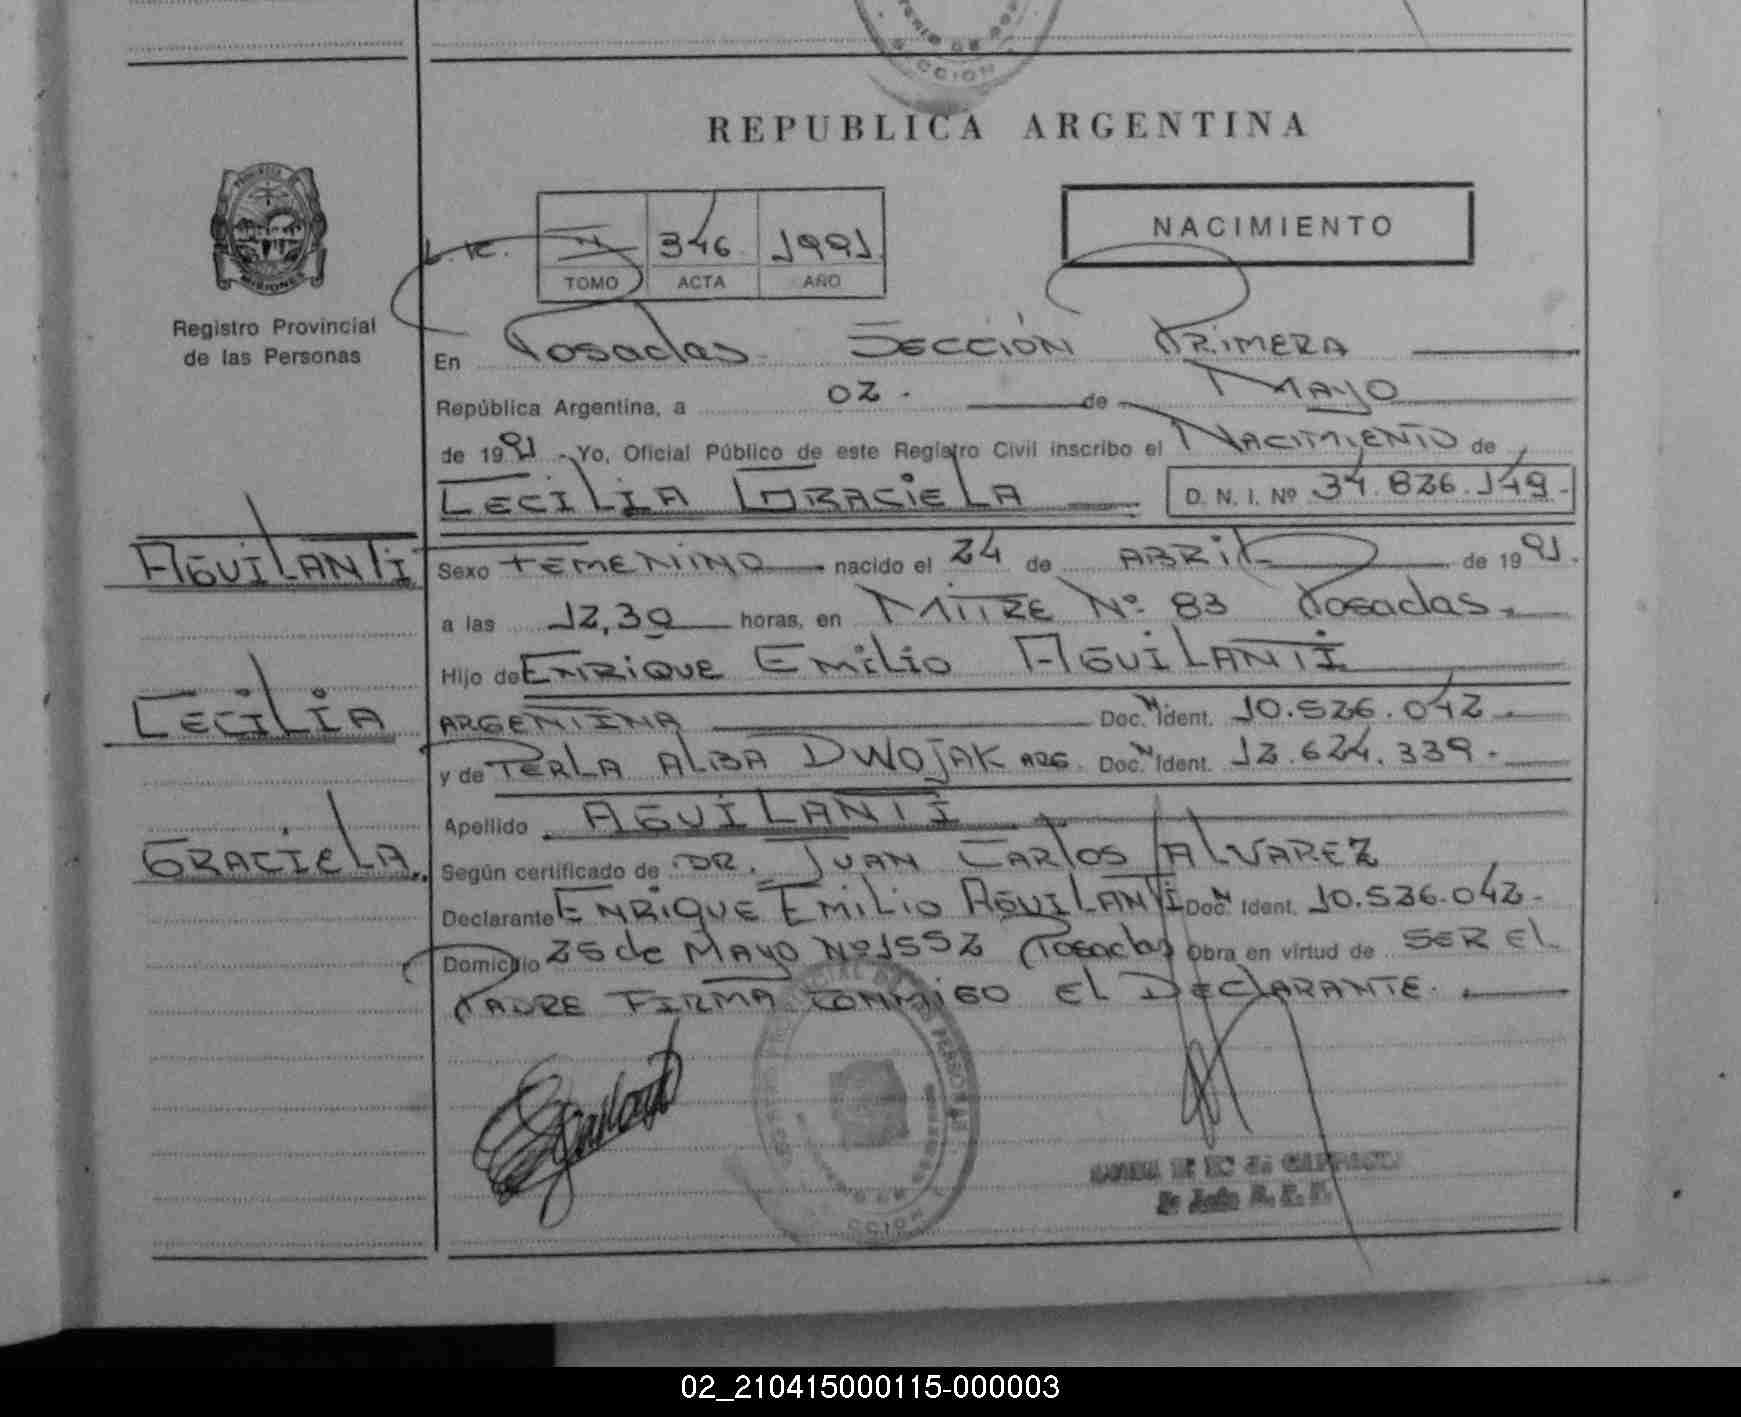 REPUBLICA ARGENTINA
NACIMIENTO
II 346. 1991.
TOMO ACTA AÑO
Registro Provincial
de las Personas
En Posadas Sección Primera
República Argentina, a 02. de Mayo
de 1991 - Yo, Oficial Público de este Registro Civil inscribo el Nacimiento de
Cecilia Graciela D. N. I. Nº 34.826.149.
Aguilanti
Sexo Femenino nacido el 24 de Abril de 1991.
a las 12,30 horas, en Mitre Nº 83 Posadas.
Hijo de Enrique Emilio Aguilanti
Cecilia
Argentina Doc. Ident. 10.526.042.
y de Perla Alba Dwojak Arg. Doc. Ident. 12.624.339.
Apellido Aguilanti
Graciela.
Según certificado de Dr. Juan Carlos Alvarez
Declarante Enrique Emilio Aguilanti Doc. Ident. 10.526.042.
Domicilio 25 de Mayo Nº 1552 Posadas Obra en virtud de ser el
Padre firma conmigo el declarante.
02_210415000115-000003